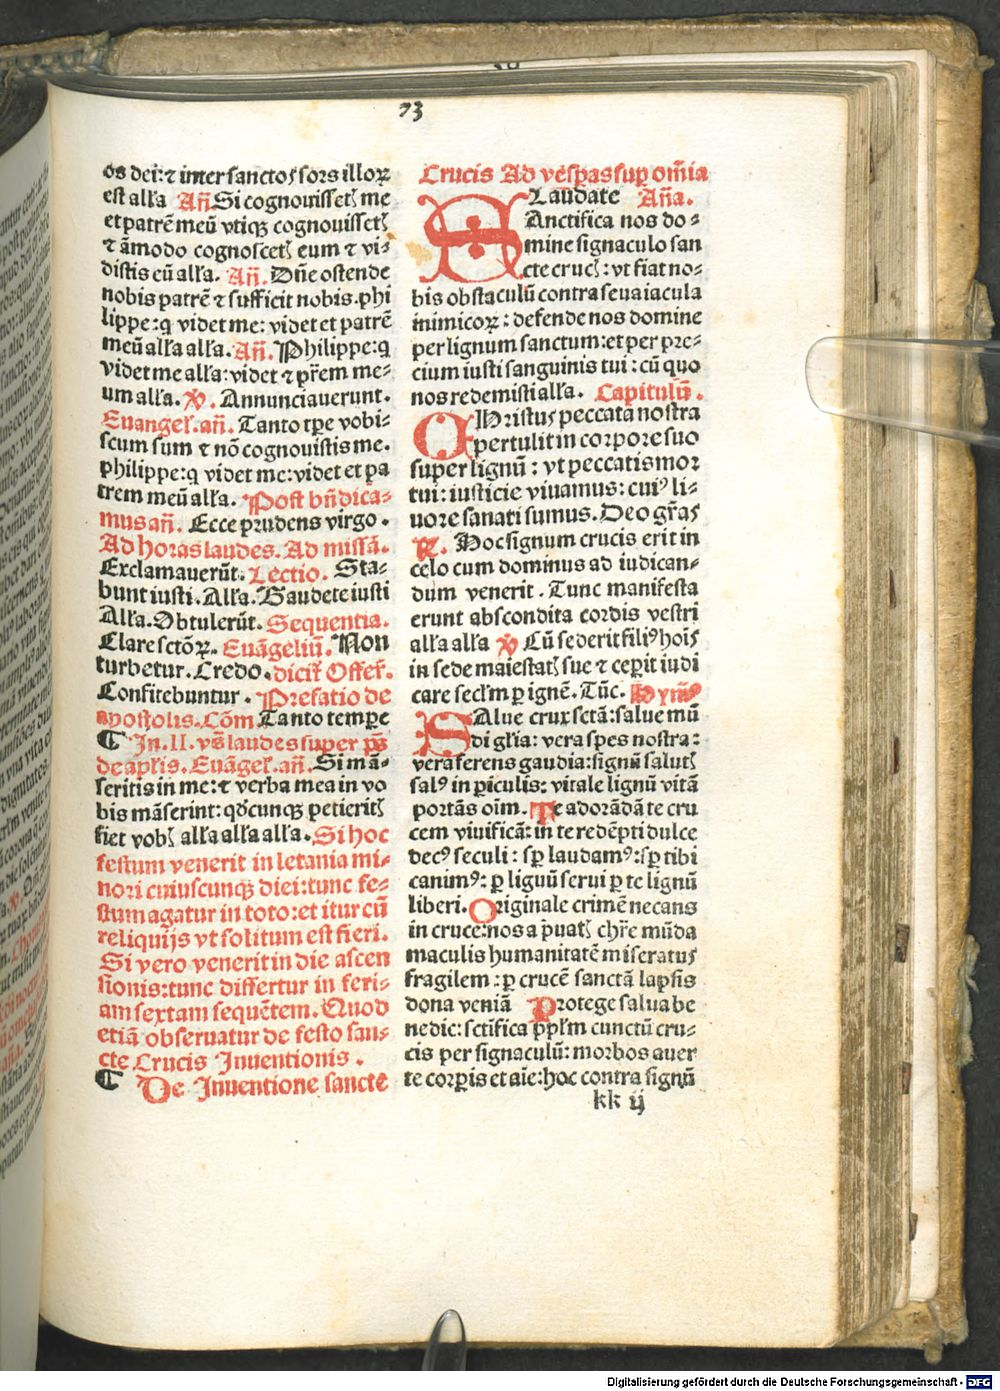 73
os dei: ⁊ inter sanctos sors illoꝝ
est alľa Añ Si cognouissetꝭ me
et patrē meū vtiqꝫ cognouissetꝭ
⁊ āmodo cognoscetꝭ eum ⁊ vi-
distis eū alľa. Añ. Dñe ostende
nobis patrē ⁊ sufficit nobis. phi
lippe: q videt me: videt et patrē
meū alľa alľa. Añ. Philippe: q
videt me alľa: videt ⁊ pr̄em me-
um alľa. ℣. Annunciauerunt.
Euangeľ. añ. Tanto tp̄e vobi-
scum sum ⁊ nō cognouistis me.
philippe: q videt me: videt et pa
trem meū alľa. Post bñdica-
mus añ. Ecce prudens virgo.
Ad horas laudes. Ad missā.
Exclamauerūt. Lectio. Sta-
bunt iusti. Alľa. Gaudete iusti
Alľa. Obtulerūt. Sequentia.
Clare sctōꝝ. Euāgeliū. Non
turbetur. Credo. dicit̄ Offer̄.
Confitebuntur. Prefatio de
apostolis. Cōm Tanto tempe
¶ In. II. vs̄ laudes super ps̄
de apľis. Euāgeľ. añ. Si mā-
seritis in me: ⁊ verba mea in vo
bis māserint: qd̄cunqꝫ petieritꝭ
fiet vobꝭ alľa alľa alľa. Si hoc
festum venerit in letania mi-
nori cuiuscunqꝫ diei: tunc fe-
stum agatur in toto: et itur cū
reliquijs vt solitum est fieri.
Si vero venerit in die ascen
sionis: tunc differtur in feri-
am sextam sequētem. Quod
etiā obseruatur de festo san-
cte Crucis Inuentionis.
¶ De Inuentione sancte
Crucis Ad vesp̄as sup om̄ia
Laudate Aña.
SAnctifica nos do-
mine signaculo san
cte crucꝭ: vt fiat no-
bis obstaculū contra seua iacula
inimicoꝝ: defende nos domine
per lignum sanctum: et per pre-
cium iusti sanguinis tui: cū quo
nos redemisti alľa. Capitulū.
CHristus peccata nostra
pertulit in corpore suo
super lignū: vt peccatis mor
tui: iusticie viuamus: cuiꝰ li-
uore sanati sumus. Deo gr̄as
℟. Hoc signum crucis erit in
celo cum dominus ad iudican-
dum venerit. Tunc manifesta
erunt abscondita cordis vestri
alľa alľa ℣ Cū sederit filiꝰ hoīs
in sede maiestatꝭ sue ⁊ ceperit iudi
care secľm p ignē. Tūc. Hymꝰ
SAlue crux sctā: salue mū
di gľia: vera spes nostra:
vera ferens gaudia: signū salutꝭ
salꝰ in piculis: vitale lignū vitā
portās oīm. Te adorādā te cru
cem viuificā: in te redēpti dulce
decꝰ seculi: sp laudamꝰ: sp tibi
canimꝰ: p lignū serui p te lignū
liberi. Originale crimē necans
in cruce: nos a p̄uatꝭ chr̄e mūda
maculis humanitatē miseratus
fragilem: p crucē sanctā lapsis
dona veniā Protege salua be
nedic: sctifica pp̄ľm cunctū cru-
cis per signaculū: morbos auer
te corpis et aīe: hoc contra signū
kk ij
Digitalisierung gefördert durch die Deutsche Forschungsgemeinschaft - DFG